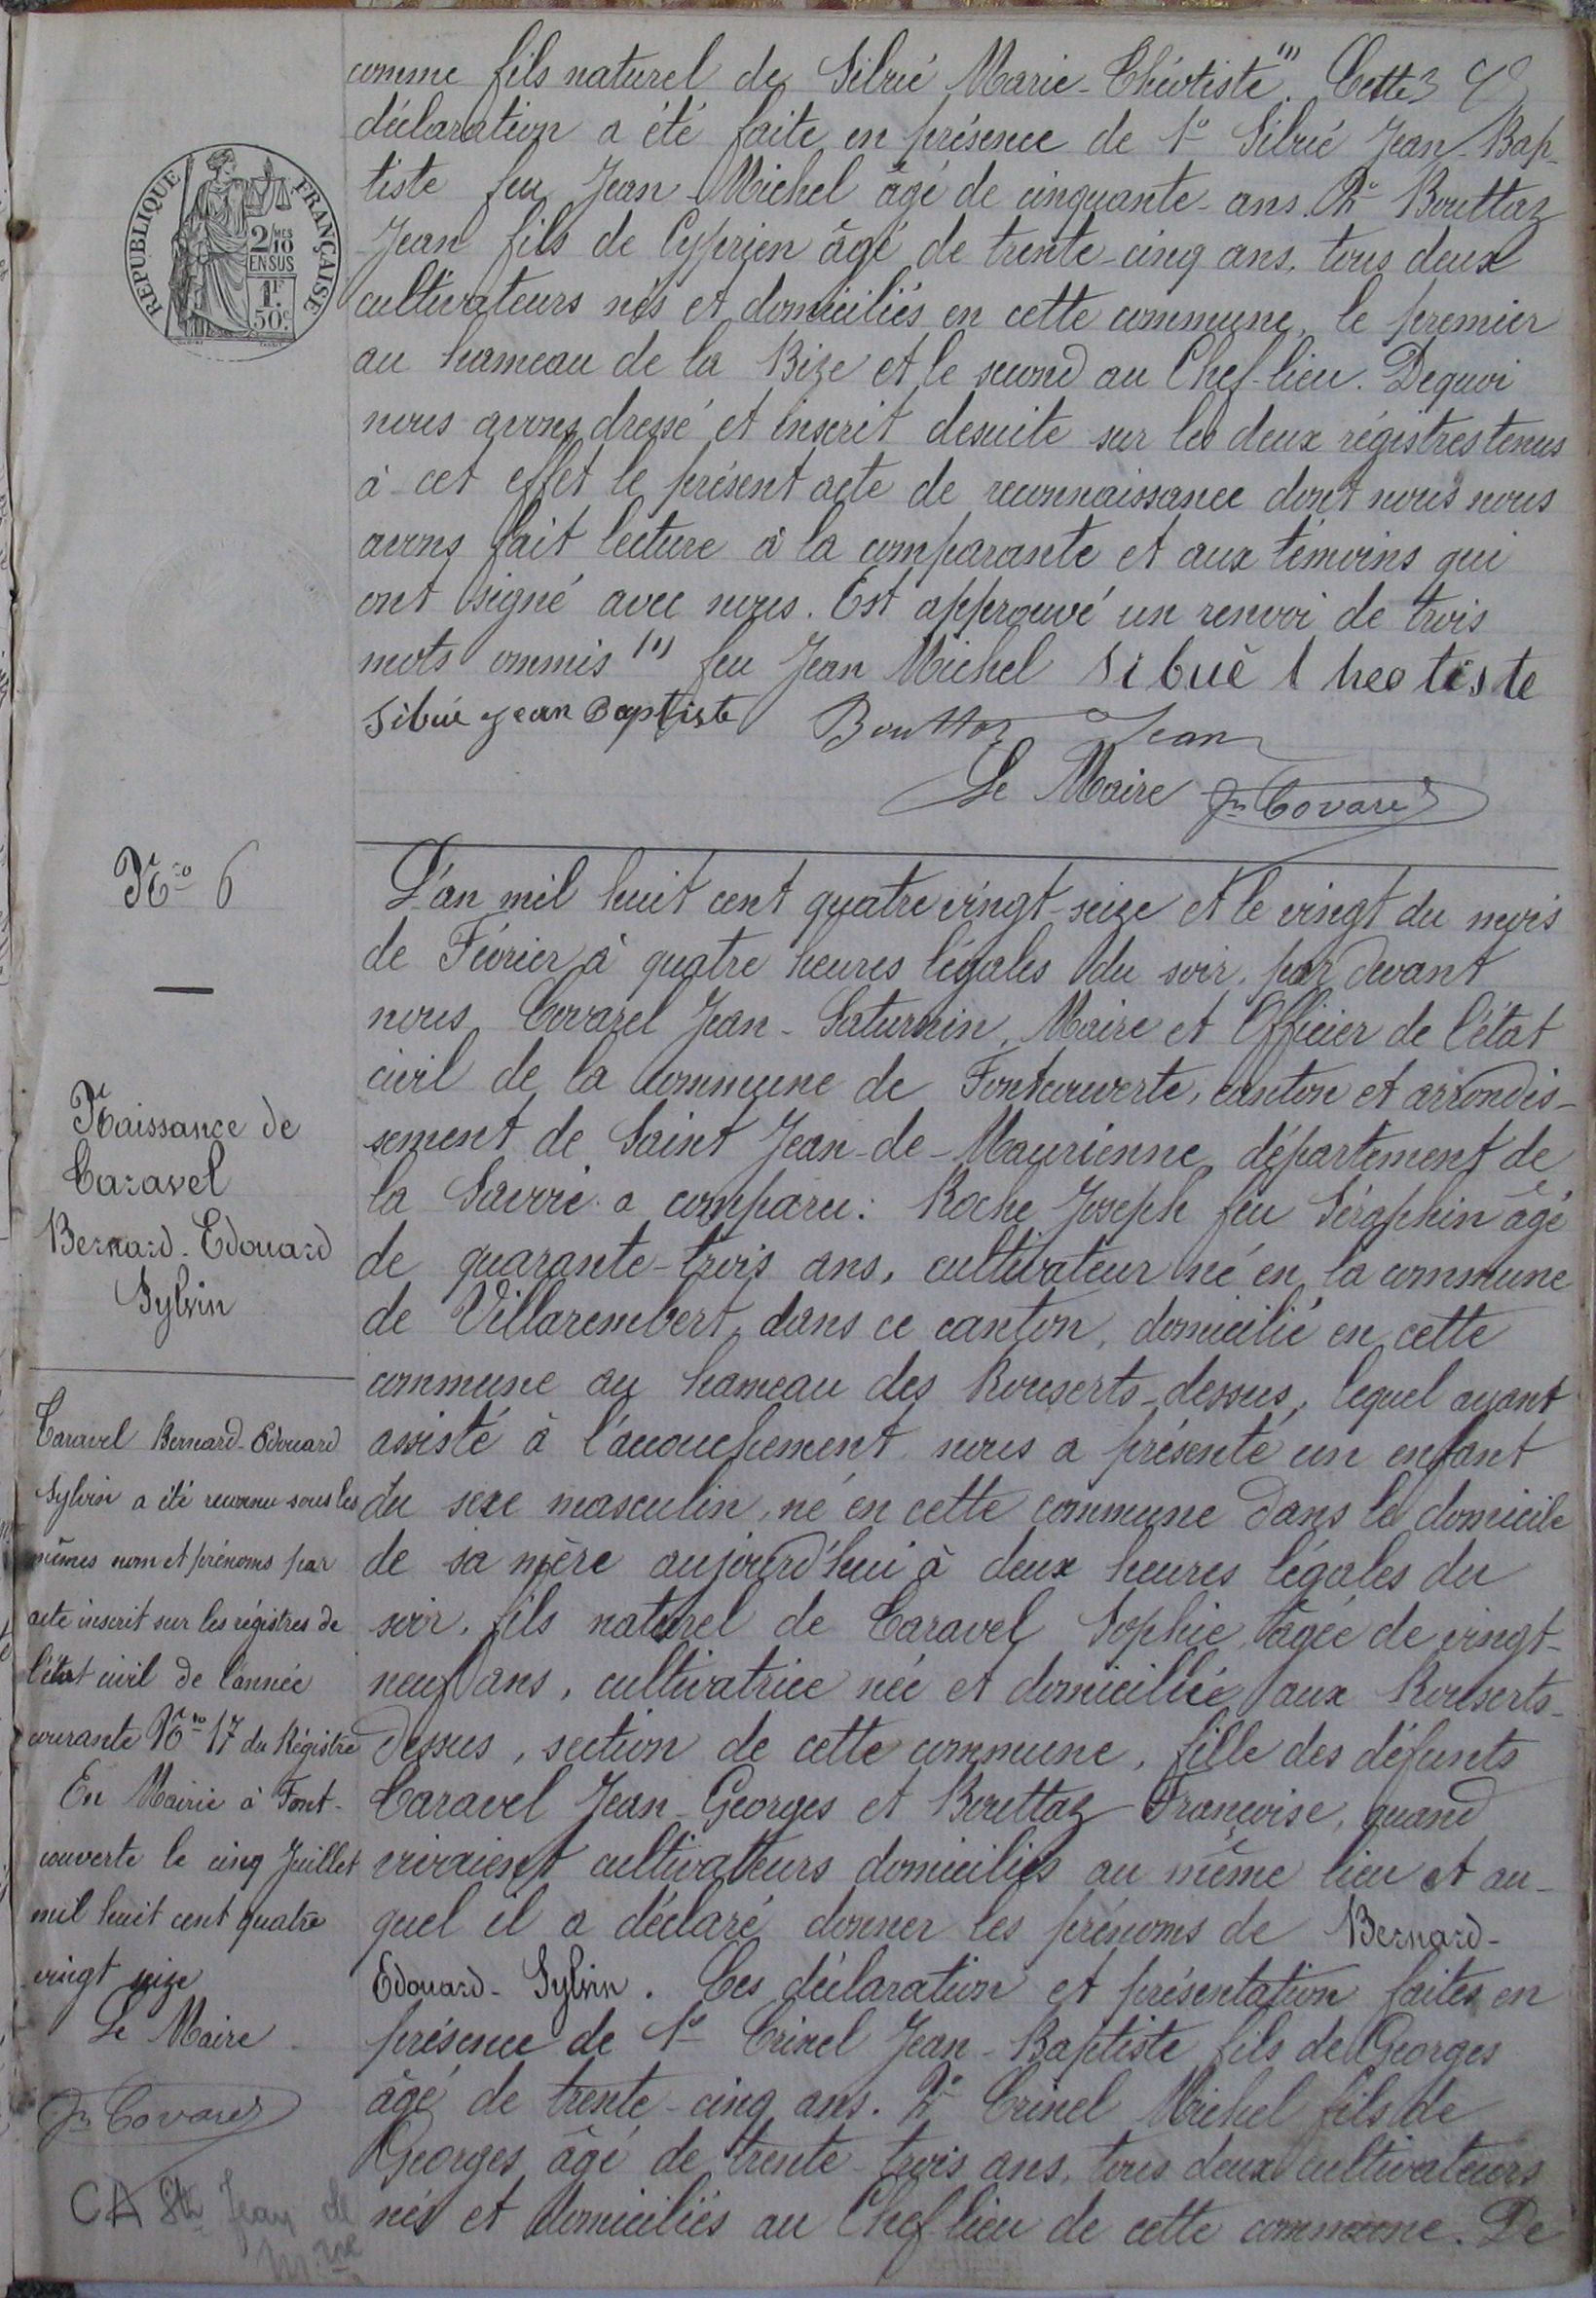 comme fils naturel de Sibué Marie-Théotiste ". Cette
déclaration a été faite en présence de 1° Sibué Jean-Bap-
tiste feu Jean-Michel âgé de cinquante-ans. 2° Bouttaz
Jean fils de Cyprien âgé de trente-cinq ans, tous deux
cultivateurs nés et domiciliés en cette commune, le premier
au hameau de la Bize et le second au Chef-lieu. Dequoi
nous avons dressé et inscrit desuite sur les deux régistres tenus
à cet effet le présent acte de reconnaissance dont nous nous
avons fait lecture à la comparante et aux témoins qui
ont signé avec nous. Est approuvé un renvoi de trois
mots ommis " feu Jean Michel Sibuè theotiste
Sibué jean Baptiste Bouttaz Jean
Le Maire Jn Covarel
REPUBLIQUE FRANÇAISE
2/10 MES
EN SUS
1F
50c
N° 6
Naissance de
Caravel
Bernard-Edouard
Sylvin
Caravel Bernard-Edouard
Sylvin a été reconnu sous les
mêmes nom et prénoms par
acte inscrit sur les régistres de
l'état civil de l'année
courante N° 17 du Régistre
En Mairie à Font-
couverte le cinq Juillet
mil huit cent quatre
vingt seize
Le Maire
Jn Covarel
CA St Jean de
Mne
L'an mil huit cent quatre vingt-seize et le vingt du mois
de Février à quatre heures légales du soir, par devant
nous Covarel Jean-Saturnin, Maire et Officier de l'état
civil de la commune de Fontcouverte, canton et arrondis-
sement de Saint Jean-de-Maurienne département de
la Savoie a comparu: Roche Joseph feu Séraphin âgé
de quarante-trois ans, cultivateur né en la commune
de Villarembert dans ce canton, domicilié en cette
commune au hameau des Rouserts-dessus, lequel ayant
assisté à l'acouchement nous a présenté un enfant
du sexe masculin, né en cette commune dans le domicile
de sa mère aujourd'hui à deux heures légales du
soir, fils naturel de Caravel Sophie, âgée de vingt-
neuf ans, cultivatrice née et domiciliée aux Rouserts-
dessus, section de cette commune, fille des défunts
Caravel Jean-Georges et Bouttaz Françoise, quand
vivaient cultivateurs domiciliés au même lieu et au-
quel il a déclaré donner les prénoms de Bernard-
Edouard-Sylvin. Ces déclaration et présentation faites en
présence de 1° Crinel Jean-Baptiste fils de Georges
âgé de trente-cinq ans. 2° Crinel Michel fils de
Georges âgé de trente-trois ans, tous deux cultivateurs
nés et domiciliés au Chef-lieu de cette commune. De